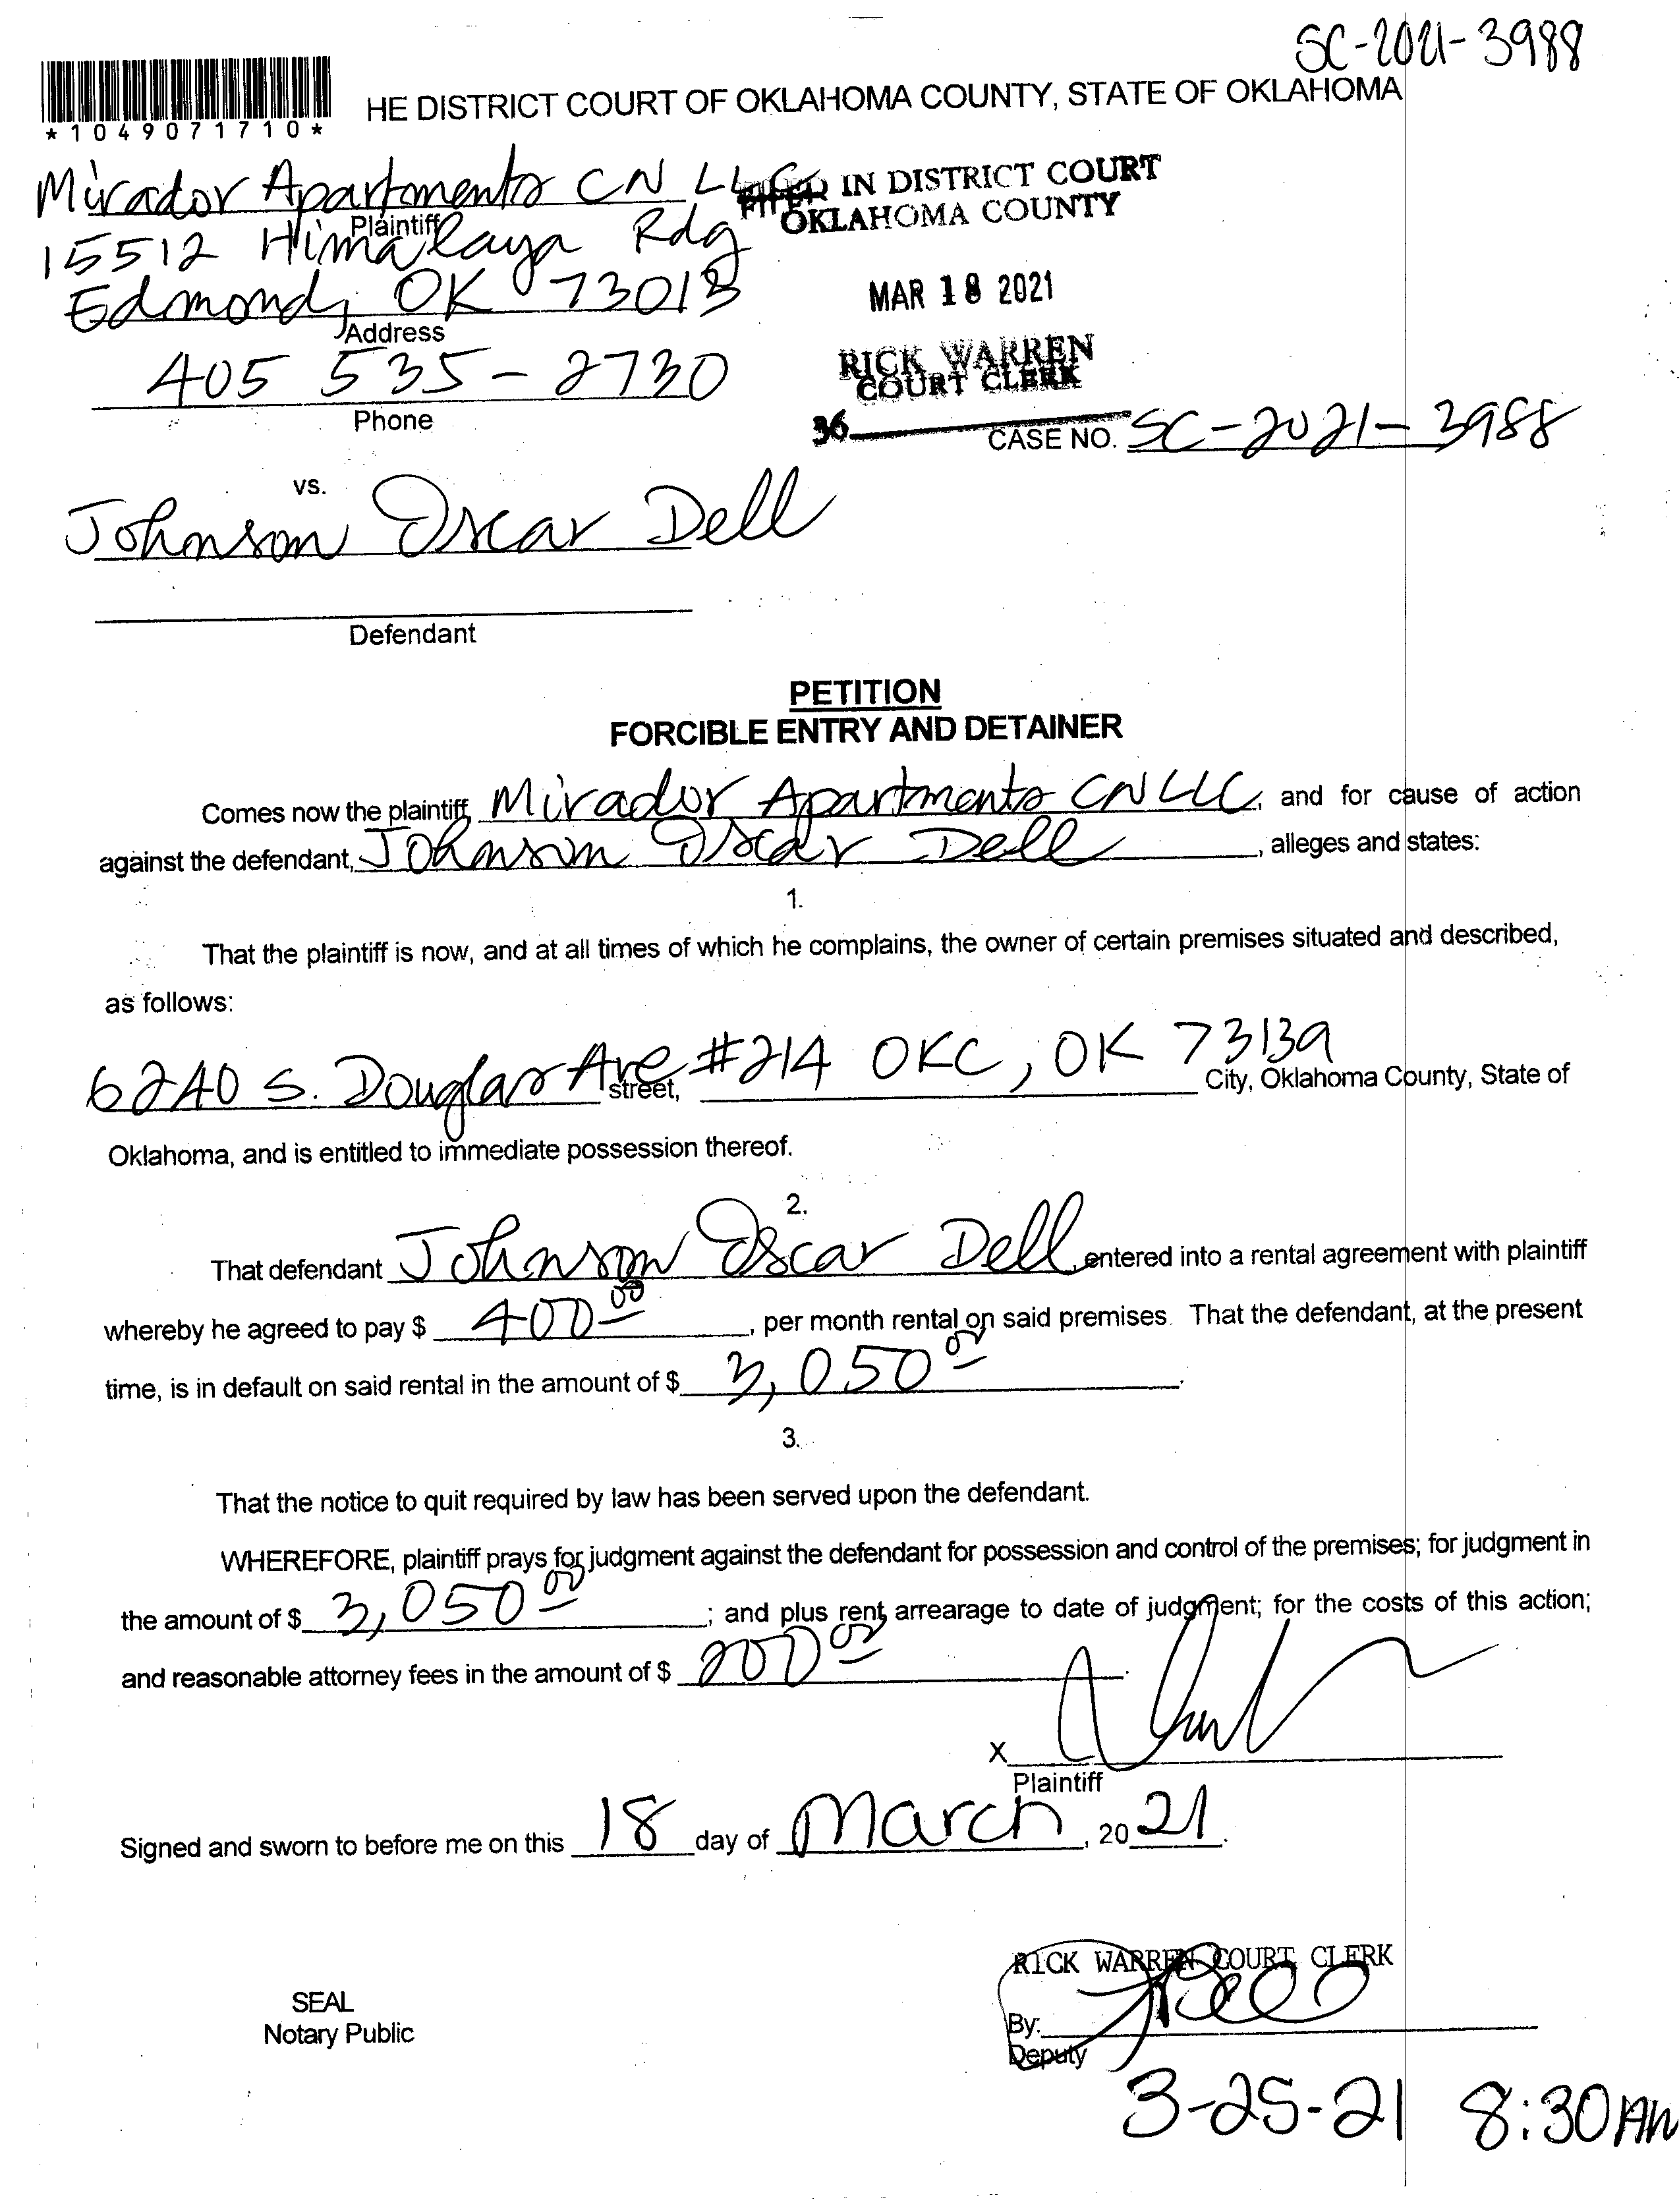 SC-2021-3988
*1049071710*
HE DISTRICT COURT OF OKLAHOMA COUNTY, STATE OF OKLAHOMA
Mirador Apartments CN LLC
Plaintiff
FILED IN DISTRICT COURT
OKLAHOMA COUNTY
15512 Himalaya Rdg
Edmond, OK 73013
Address
MAR 18 2021
405 535-2730
Phone
RICK WARREN
COURT CLERK
36
CASE NO. SC-2021-3988
vs.
Johnson Oscar Dell
Defendant
PETITION
FORCIBLE ENTRY AND DETAINER
Comes now the plaintiff, Mirador Apartments CN LLC, and for cause of action
against the defendant, Johnson Oscar Dell, alleges and states:
1.
That the plaintiff is now, and at all times of which he complains, the owner of certain premises situated and described,
as follows:
6240 S. Douglas Ave street, #214 OKC, OK 73139 City, Oklahoma County, State of
Oklahoma, and is entitled to immediate possession thereof.
2.
That defendant Johnson Oscar Dell, entered into a rental agreement with plaintiff
whereby he agreed to pay $ 400 00, per month rental on said premises. That the defendant, at the present
time, is in default on said rental in the amount of $ 3,050 00.
3.
That the notice to quit required by law has been served upon the defendant.
WHEREFORE, plaintiff prays for judgment against the defendant for possession and control of the premises; for judgment in
the amount of $ 3,050 00; and plus rent arrearage to date of judgment; for the costs of this action;
and reasonable attorney fees in the amount of $ 200 00.
X
Plaintiff
Signed and sworn to before me on this 18 day of March, 20 21.
RICK WARREN COURT CLERK
SEAL
Notary Public
By:
Deputy
3-25-21 8:30 AM